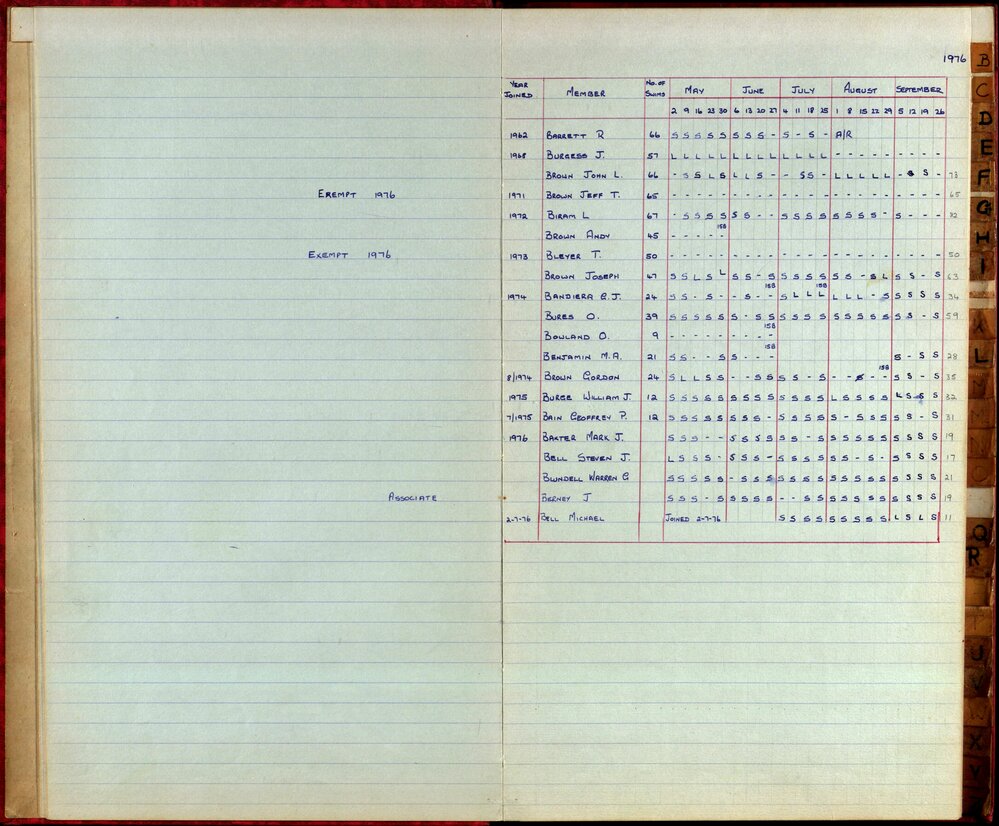 1976
YEAR JOINED MEMBER NO. OF SWIMS MAY JUNE JULY AUGUST SEPTEMBER
2 9 16 23 30 6 13 20 27 4 11 18 25 1 8 15 22 29 5 12 19 26
1962 BARRETT R 66 S S S S S S S S - S - S - A/R
1968 BURGESS J. 57 L L L L L L L L L L L L L - - - - - - - - -
BROWN JOHN L. 66 - S S L S L L S - - S S - L L L L L - S S - 73
EXEMPT 1976 1971 BROWN JEFF T. 65 - - - - - - - - - - - - - - - - - - - - - - 65
1972 BIRAM L 67 - S S S S S S - - S S S S S S S S - S - - - 82
158
BROWN ANDY 45 - - - - -
EXEMPT 1976 1973 BLEYER T. 50 - - - - - - - - - - - - - - - - - - - - - - 50
BROWN JOSEPH 47 S S L S L S S - S S S S S S S - S L S S - S 63
158 158
1974 BANDIERA G.J. 24 S S - S - - S - - S L L L L L L - S S S S S 34
BURES O. 39 S S S S S S - S S S S S S S S S S S S S - S 59
158
BOWLAND O. 9 - - - - - - - - -
158
BENJAMIN M.A. 21 S S - - S S - - - S - S S 28
158
8/1974 BROWN GORDON 24 S L L S S - - S S S S - S - - S - - S S - S 35
1975 BURGE WILLIAM J. 12 S S S S S S S S S S S S S L S S S S L S S S 32
7/1975 BAIN GEOFFREY P. 12 S S S S S S S S - S S S S S - S S S S S - S 31
1976 BAXTER MARK J. S S S - - S S S S S S - S S S S S S S S S S 19
BELL STEVEN J. L S S S - S S S - S S S S S - S - S S S S 17
BLUNDELL WARREN G S S S S S - S S S S S S S S S S S S S S S S 21
ASSOCIATE BERNEY J S S S - S S S S S - - S S S S S S S S S S S 19
2-7-76 BELL MICHAEL JOINED 2-7-76 S S S S S S S S S L S L S 11
B
C
D
E
F
G
H
I
K
L
M
N
O
Q
R
T
U
V
W
X
Y